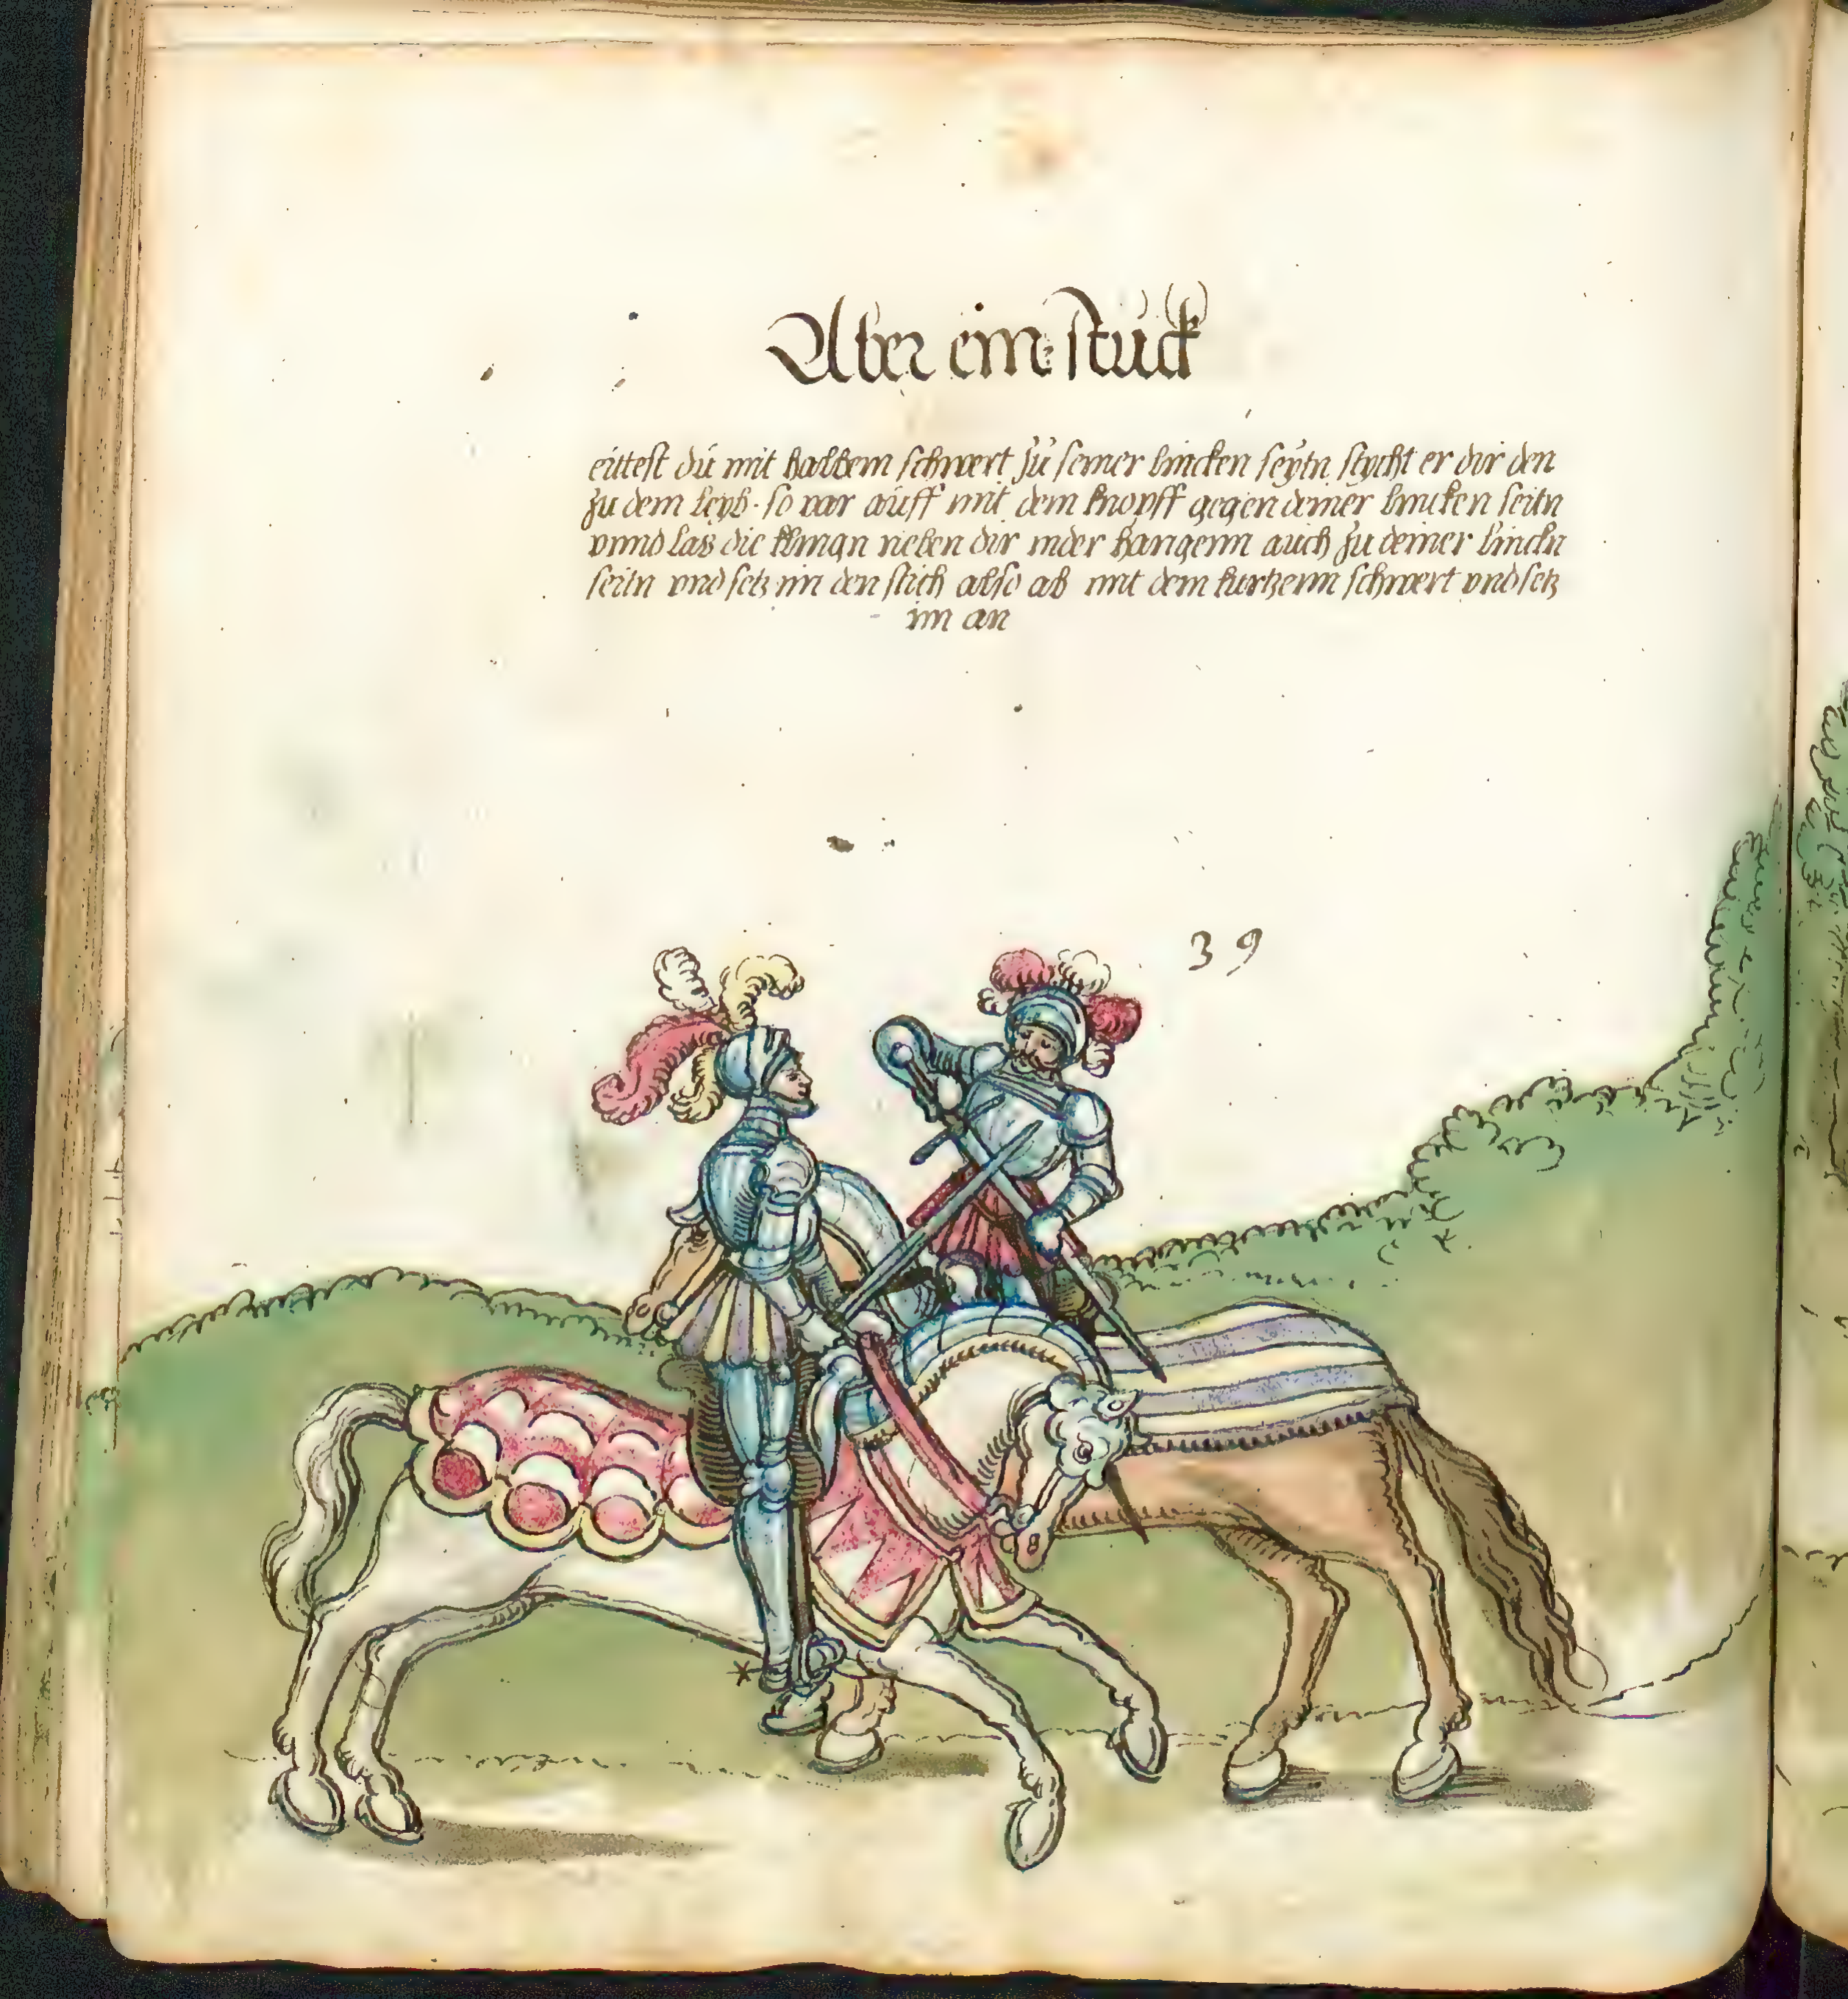 Aber ein stuck
eittest dú mit halbem schwert zú seiner lincken seytn sticht er dir den
zu dem leyb · so var aúff mit dem knopff gegen deiner lincken seitn
vnnd las die klingn neben dir nider hangenn auch zu deiner linckn
seitn vnd setz im den stich also ab mit dem kurtzenn schwert vnd setz
im an
39